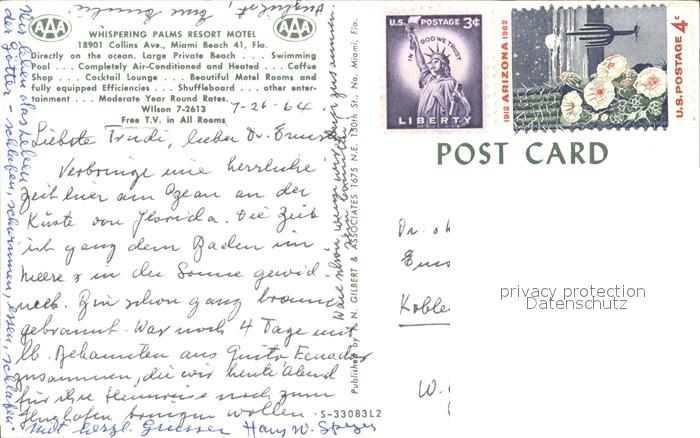 AAA
AAA
WHISPERING PALMS RESORT MOTEL
18901 Collins Ave., Miami Beach 41, Fla.
Directly on the ocean. Large Private Beach . . . Swimming
Pool . . . Completely Air-Conditioned and Heated . . . Coffee
Shop . . . Cocktail Lounge . . . Beautiful Motel Rooms and
fully equipped Efficiencies . . . Shuffleboard . . . other enter-
tainment . . . Moderate Year Round Rates.
Wilson 7-2613
Free T.V. in All Rooms
7-26-64
Liebste Trudi, lieber Dr. Ernst
Verbringe eine herrliche
Zeit hier am Ozean an der
Küste von Florida. Die Zeit
ist ganz dem Baden im
Meere & in der Sonne gewid
met. Bin schon ganz braun
gebrannt. War noch 4 Tage mit
lb. Bekannten aus Quito Ecuador
zusammen, die wir heute Abend
für ihre Heimreise noch zum
Flughafen bringen wollen.
Mit herzl. Grüssen Hans W.
Wir leben das Leben
der Götter - schlafen, schwimmen, essen, schlafen
S-33083L2
Published by R. N. GILBERT & ASSOCIATES 1675 N.E. 130th St., No. Miami, Fla.
U.S. POSTAGE 3¢
IN GOD WE TRUST
LIBERTY
1912 ARIZONA 1962
U.S. POSTAGE 4¢
POST CARD
Dr.
privacy protection
Datenschutz
W.